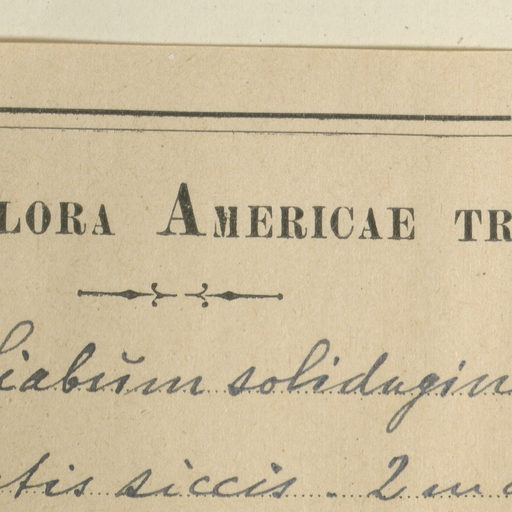 LORA AMERICAE TR
liabŭm solidagin
tis siccis - 2 m